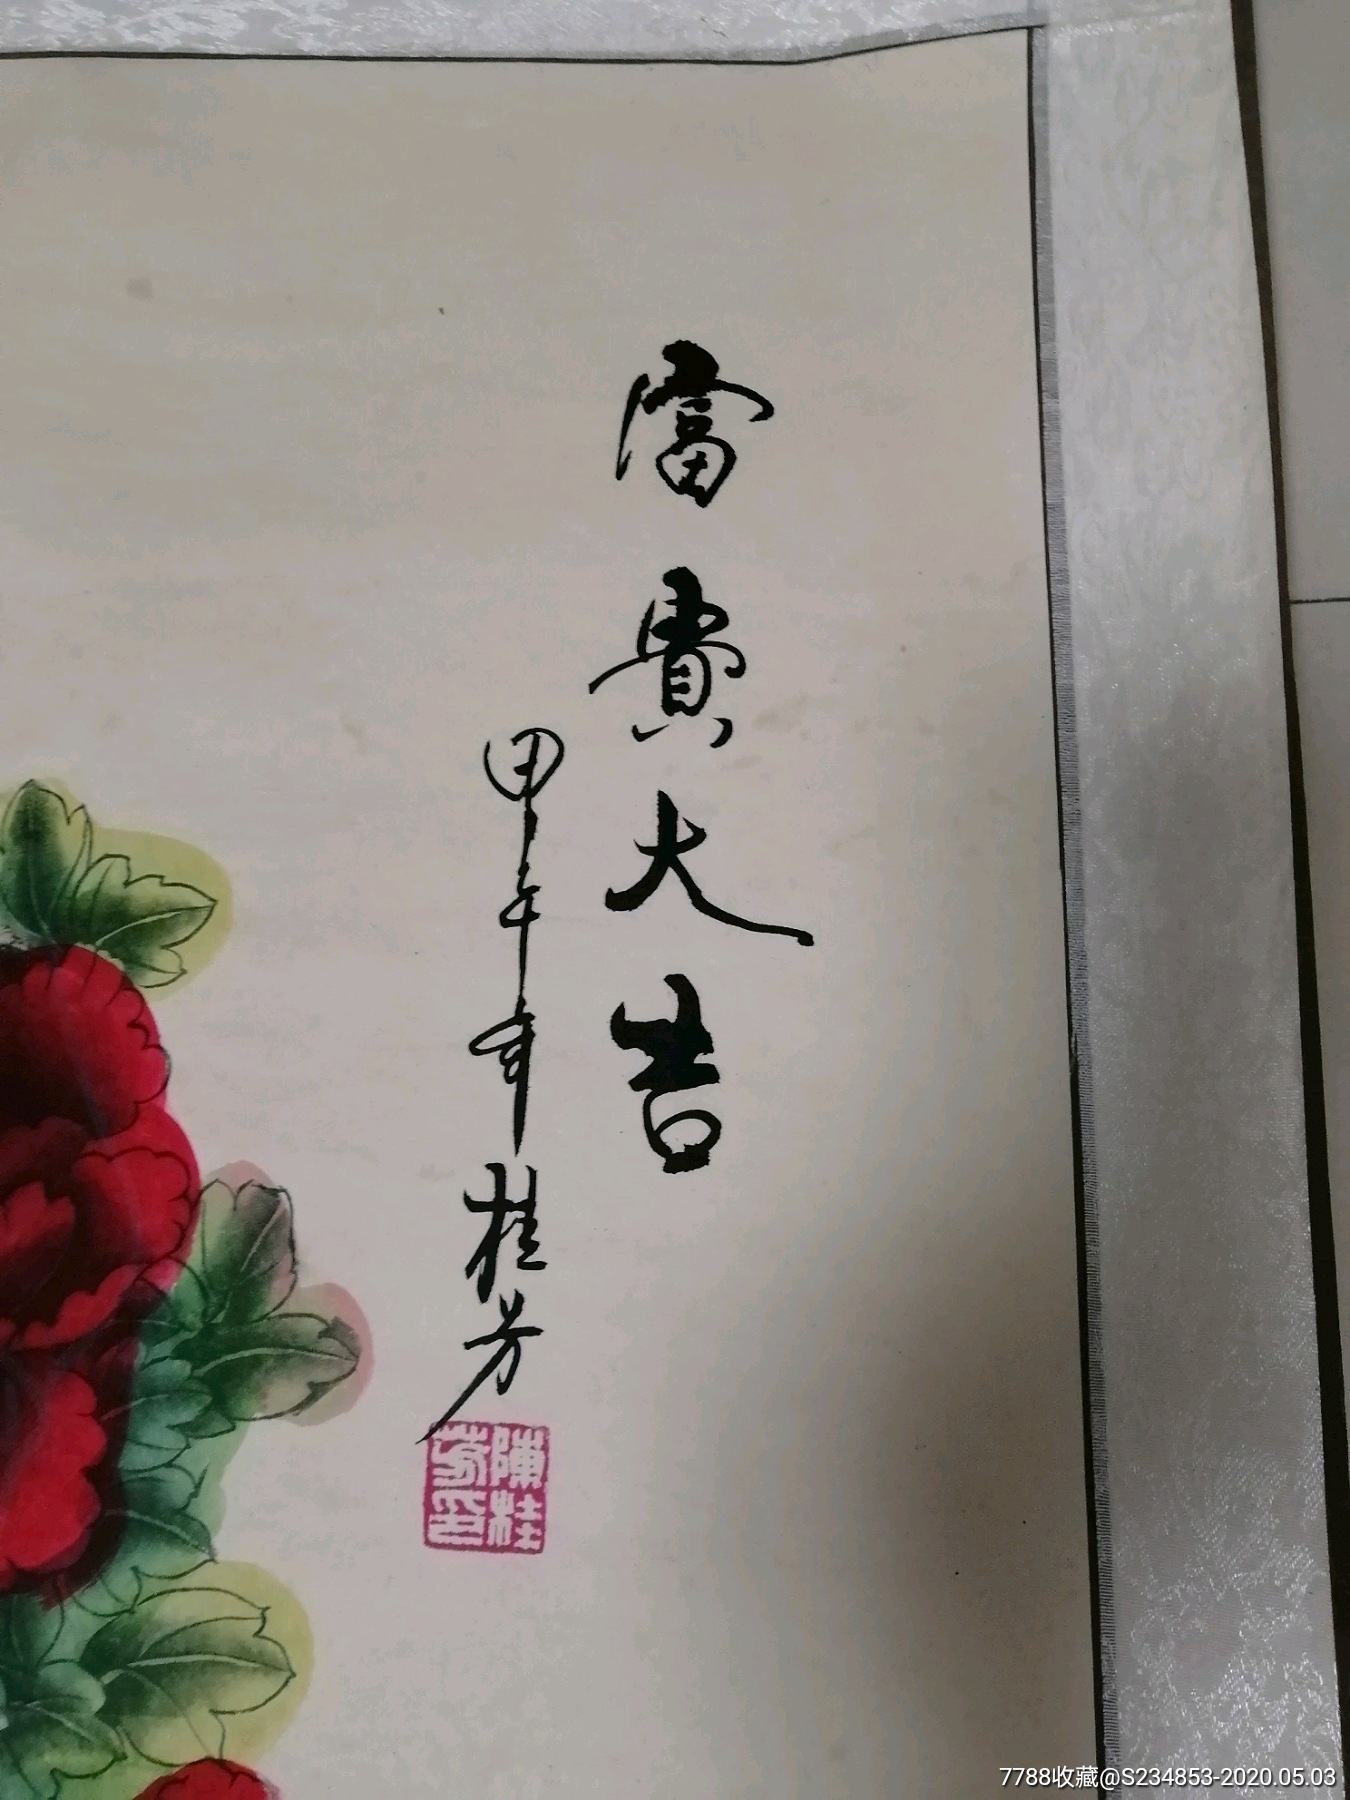 富貴大吉
甲午年桂芳
陳桂芳印
7788收藏@S234853-2020.05.03